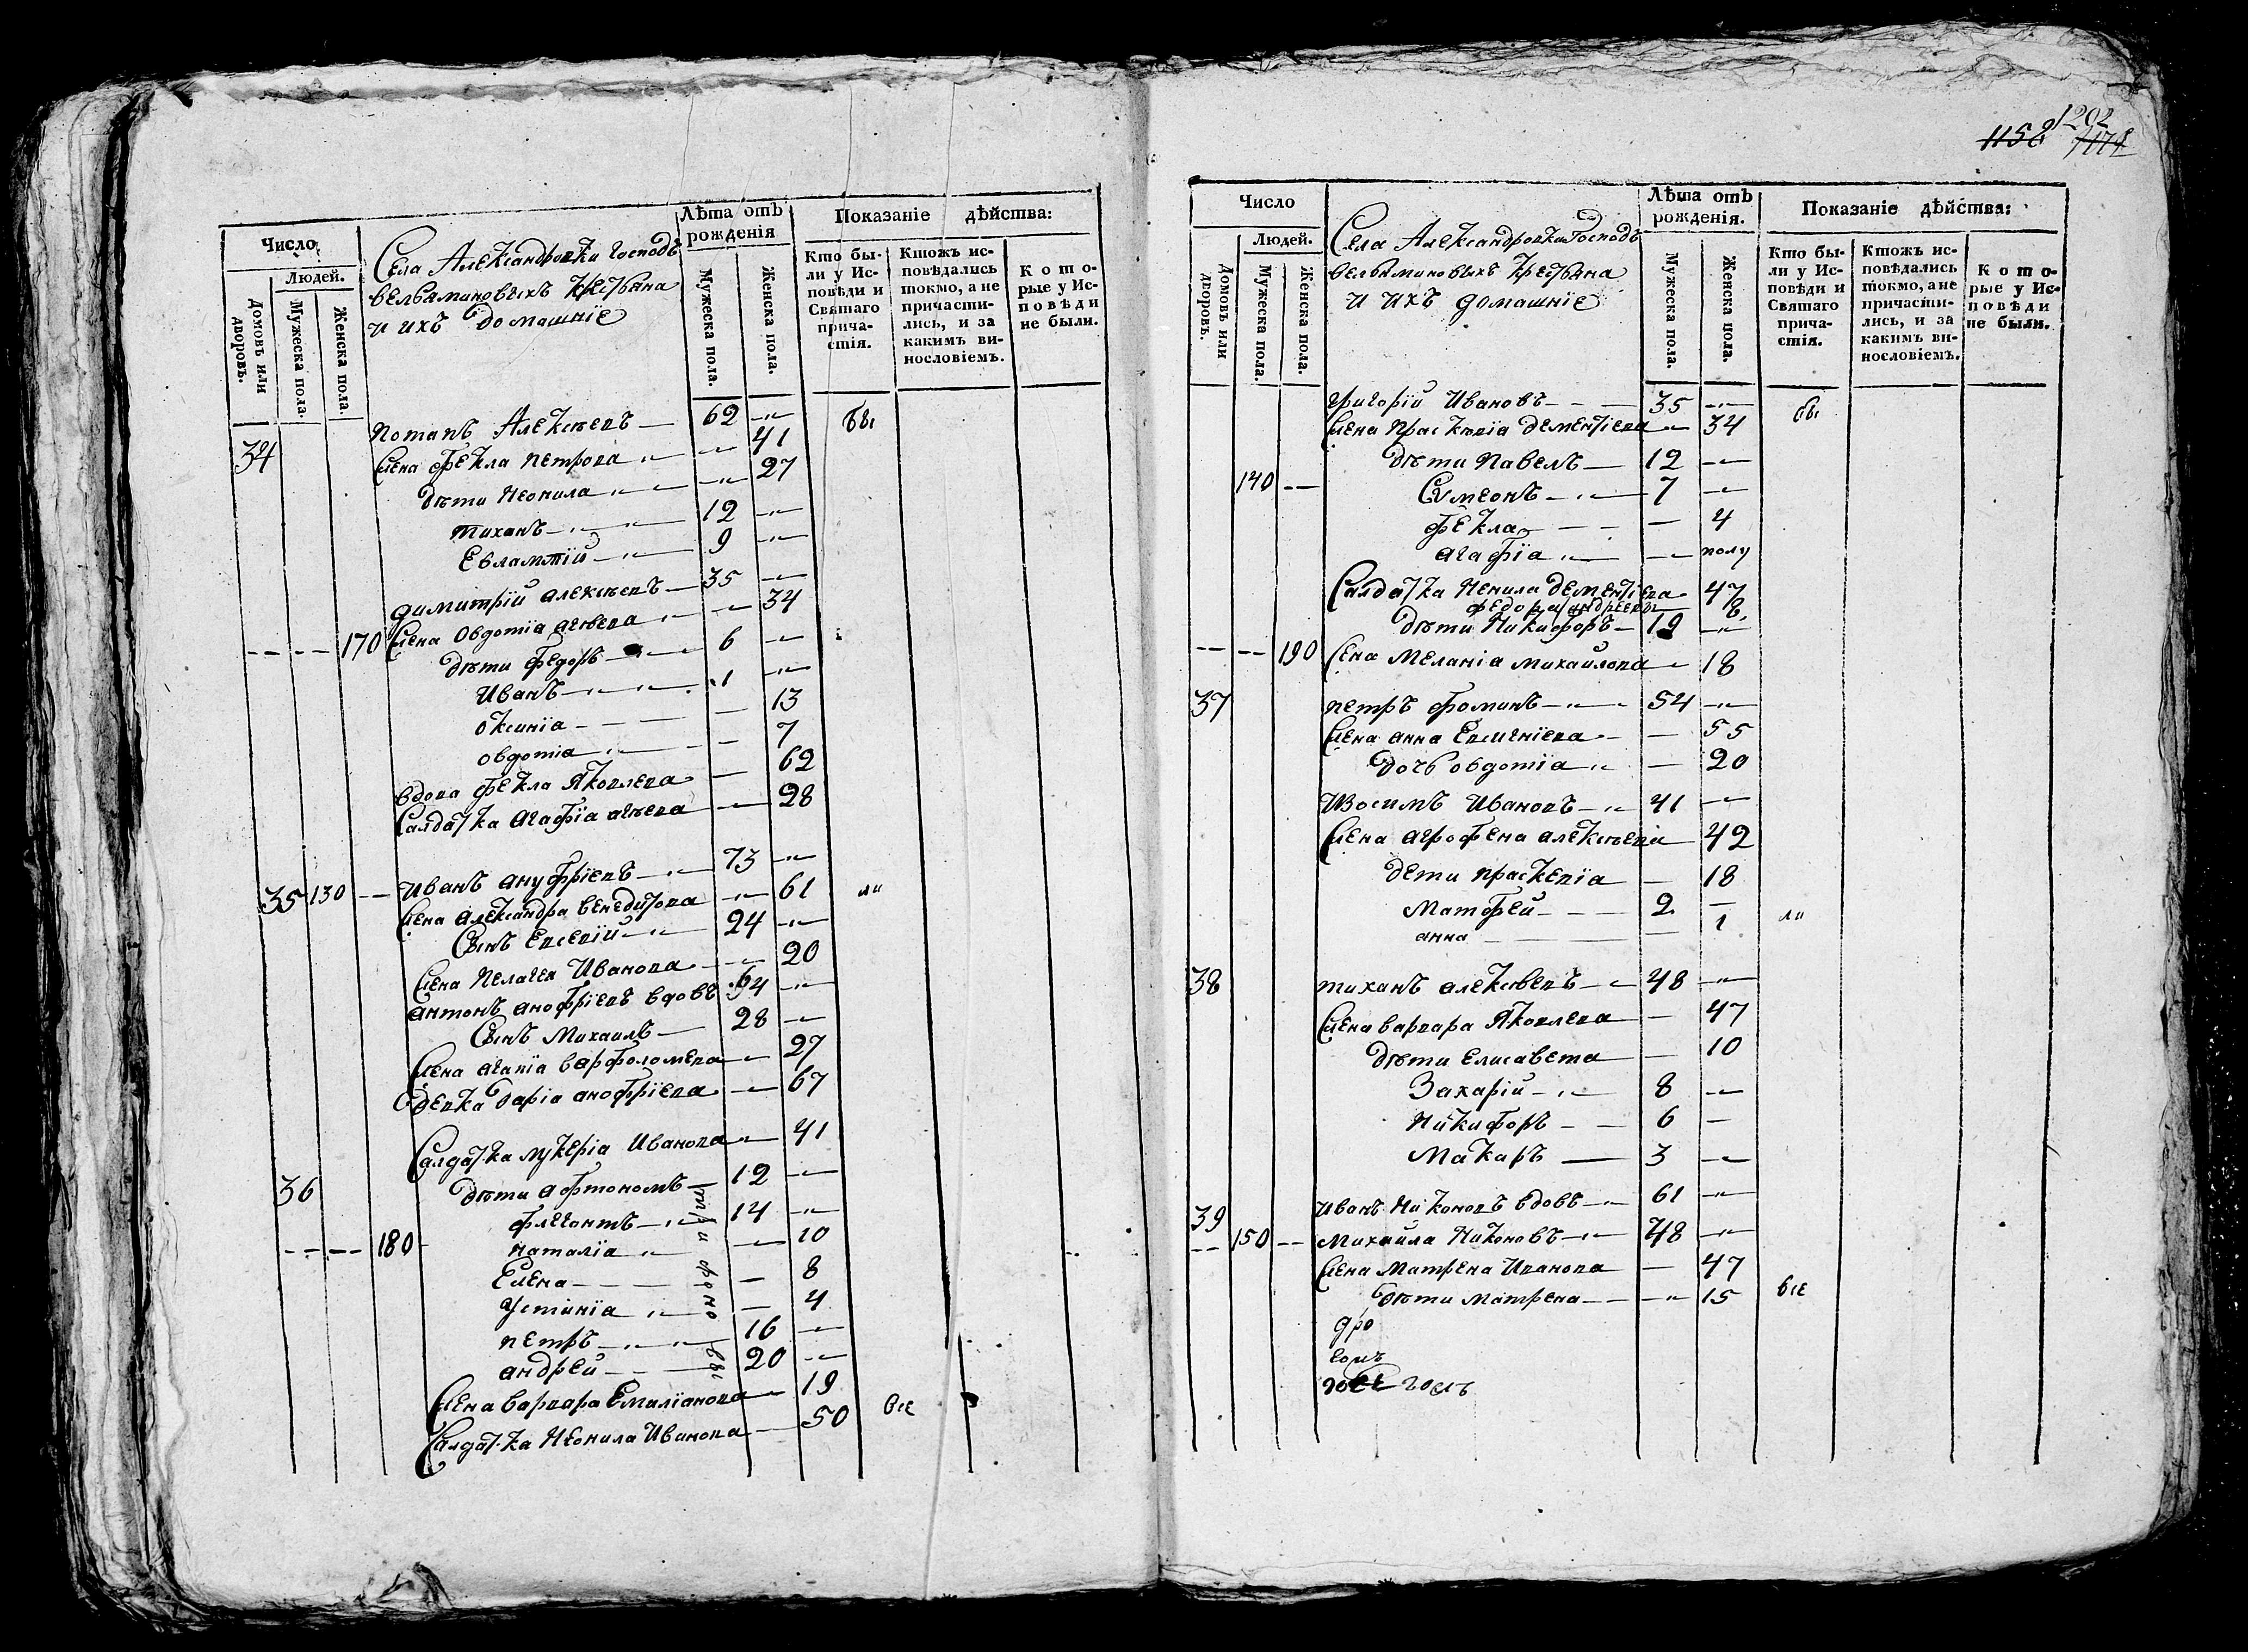 1158 1202
1174
Число
Людей.
Домовъ или дворовъ.
Мужеска пола.
Женска пола.
Села Александровки Господъ
вельяминовыхъ крестьяна
и ихъ домашніе
Лѣта отъ рожденія
Мужеска пола.
Женска пола.
Показаніе дѣйства:
Кто были у Исповѣди и Святаго причастія.
Ктожъ исповѣдались токмо, а не причастились, и за какимъ винословіемъ.
Которые у Исповѣди не были.
34 потапъ Алексѣевъ — 62 -"- бы
жена фекла петрова -"- 41
дѣти неонила -"- 27
тиханъ — 12 -"-
Евлампій — 9 -"-
димитрій алексѣевъ — 35 -"-
170 жена овдотіа агѣева -"- 34
дѣти федоръ — 6 -"-
Иванъ — 1 -"-
оксиніа — 13
овдотіа — 7
вдова фекла Яковлева — 62
Салдатка агафіа агѣева — 28
35 130 -- Иванъ ануфріевъ — 73 -"- ли
жена александра венедитова -"- 61
Сынъ Евсевій — 24 -"-
жена пелагея Иванова -"- 20
антонъ анофріевъ вдовъ 64 -"-
Сынъ Михаилъ — 28 -"-
жена агапіа варфоломеева — 27
девка даріа анофріева — 67
Салдатка лукеріа Иванова — 41
36 дѣти афтономъ — 12 -"-
флегонтъ — 14 -"-
180 наталіа — 10
Елена — 8
Устиніа — 4
петръ — 16 -"-
андрей — 20 -"-
жена варвара Емиліанова — 19
Салдатка Неонила Иванова — 50 все
Число
Людей.
Домовъ или дворовъ.
Мужеска пола.
Женска пола.
Села Александровки Господъ
вельяминовыхъ крестьяна
и ихъ домашніе
Лѣта отъ рожденія.
Мужеска пола.
Женска пола.
Показаніе дѣйства:
Кто были у Исповѣди и Святаго причастія.
Ктожъ исповѣдались токмо, а не причастились, и за какимъ винословіемъ.
Которые у Исповѣди не были.
григорій Ивановъ — 35 -"- бы
жена праскѣвіа дементіева — 34
дѣти павелъ — 12 -"-
140 -- Сѵмеонъ — 7 -"-
фекла — 4
агафіа — полу
Салдатка Ненила дементіева 47
федора андреева 6
дѣти Никифоръ — 19 -"-
190 жена Меланіа михаилова — 18
37 петръ фоминъ — 54 -"-
жена анна Евменіева — 55
дочь овдотіа — 20
Изосимъ Ивановъ — 41 -"-
жена агрофена алексѣева — 42
дети праскевіа — 18
Матфей — 2 —
анна — 1 ли
38 тиханъ алексѣевъ — 48 -"-
жена варвара Яковлева — 47
дѣти елисавета — 10
Захарій — 8 -"-
Никифоръ — 6 —
Макаръ — 3 -"-
39 иванъ Никоновъ вдовъ — 61 -"-
150 -- михаила Никоновъ — 48 -"-
жена матрена Иванова — 47
дѣти матрена — 15 все